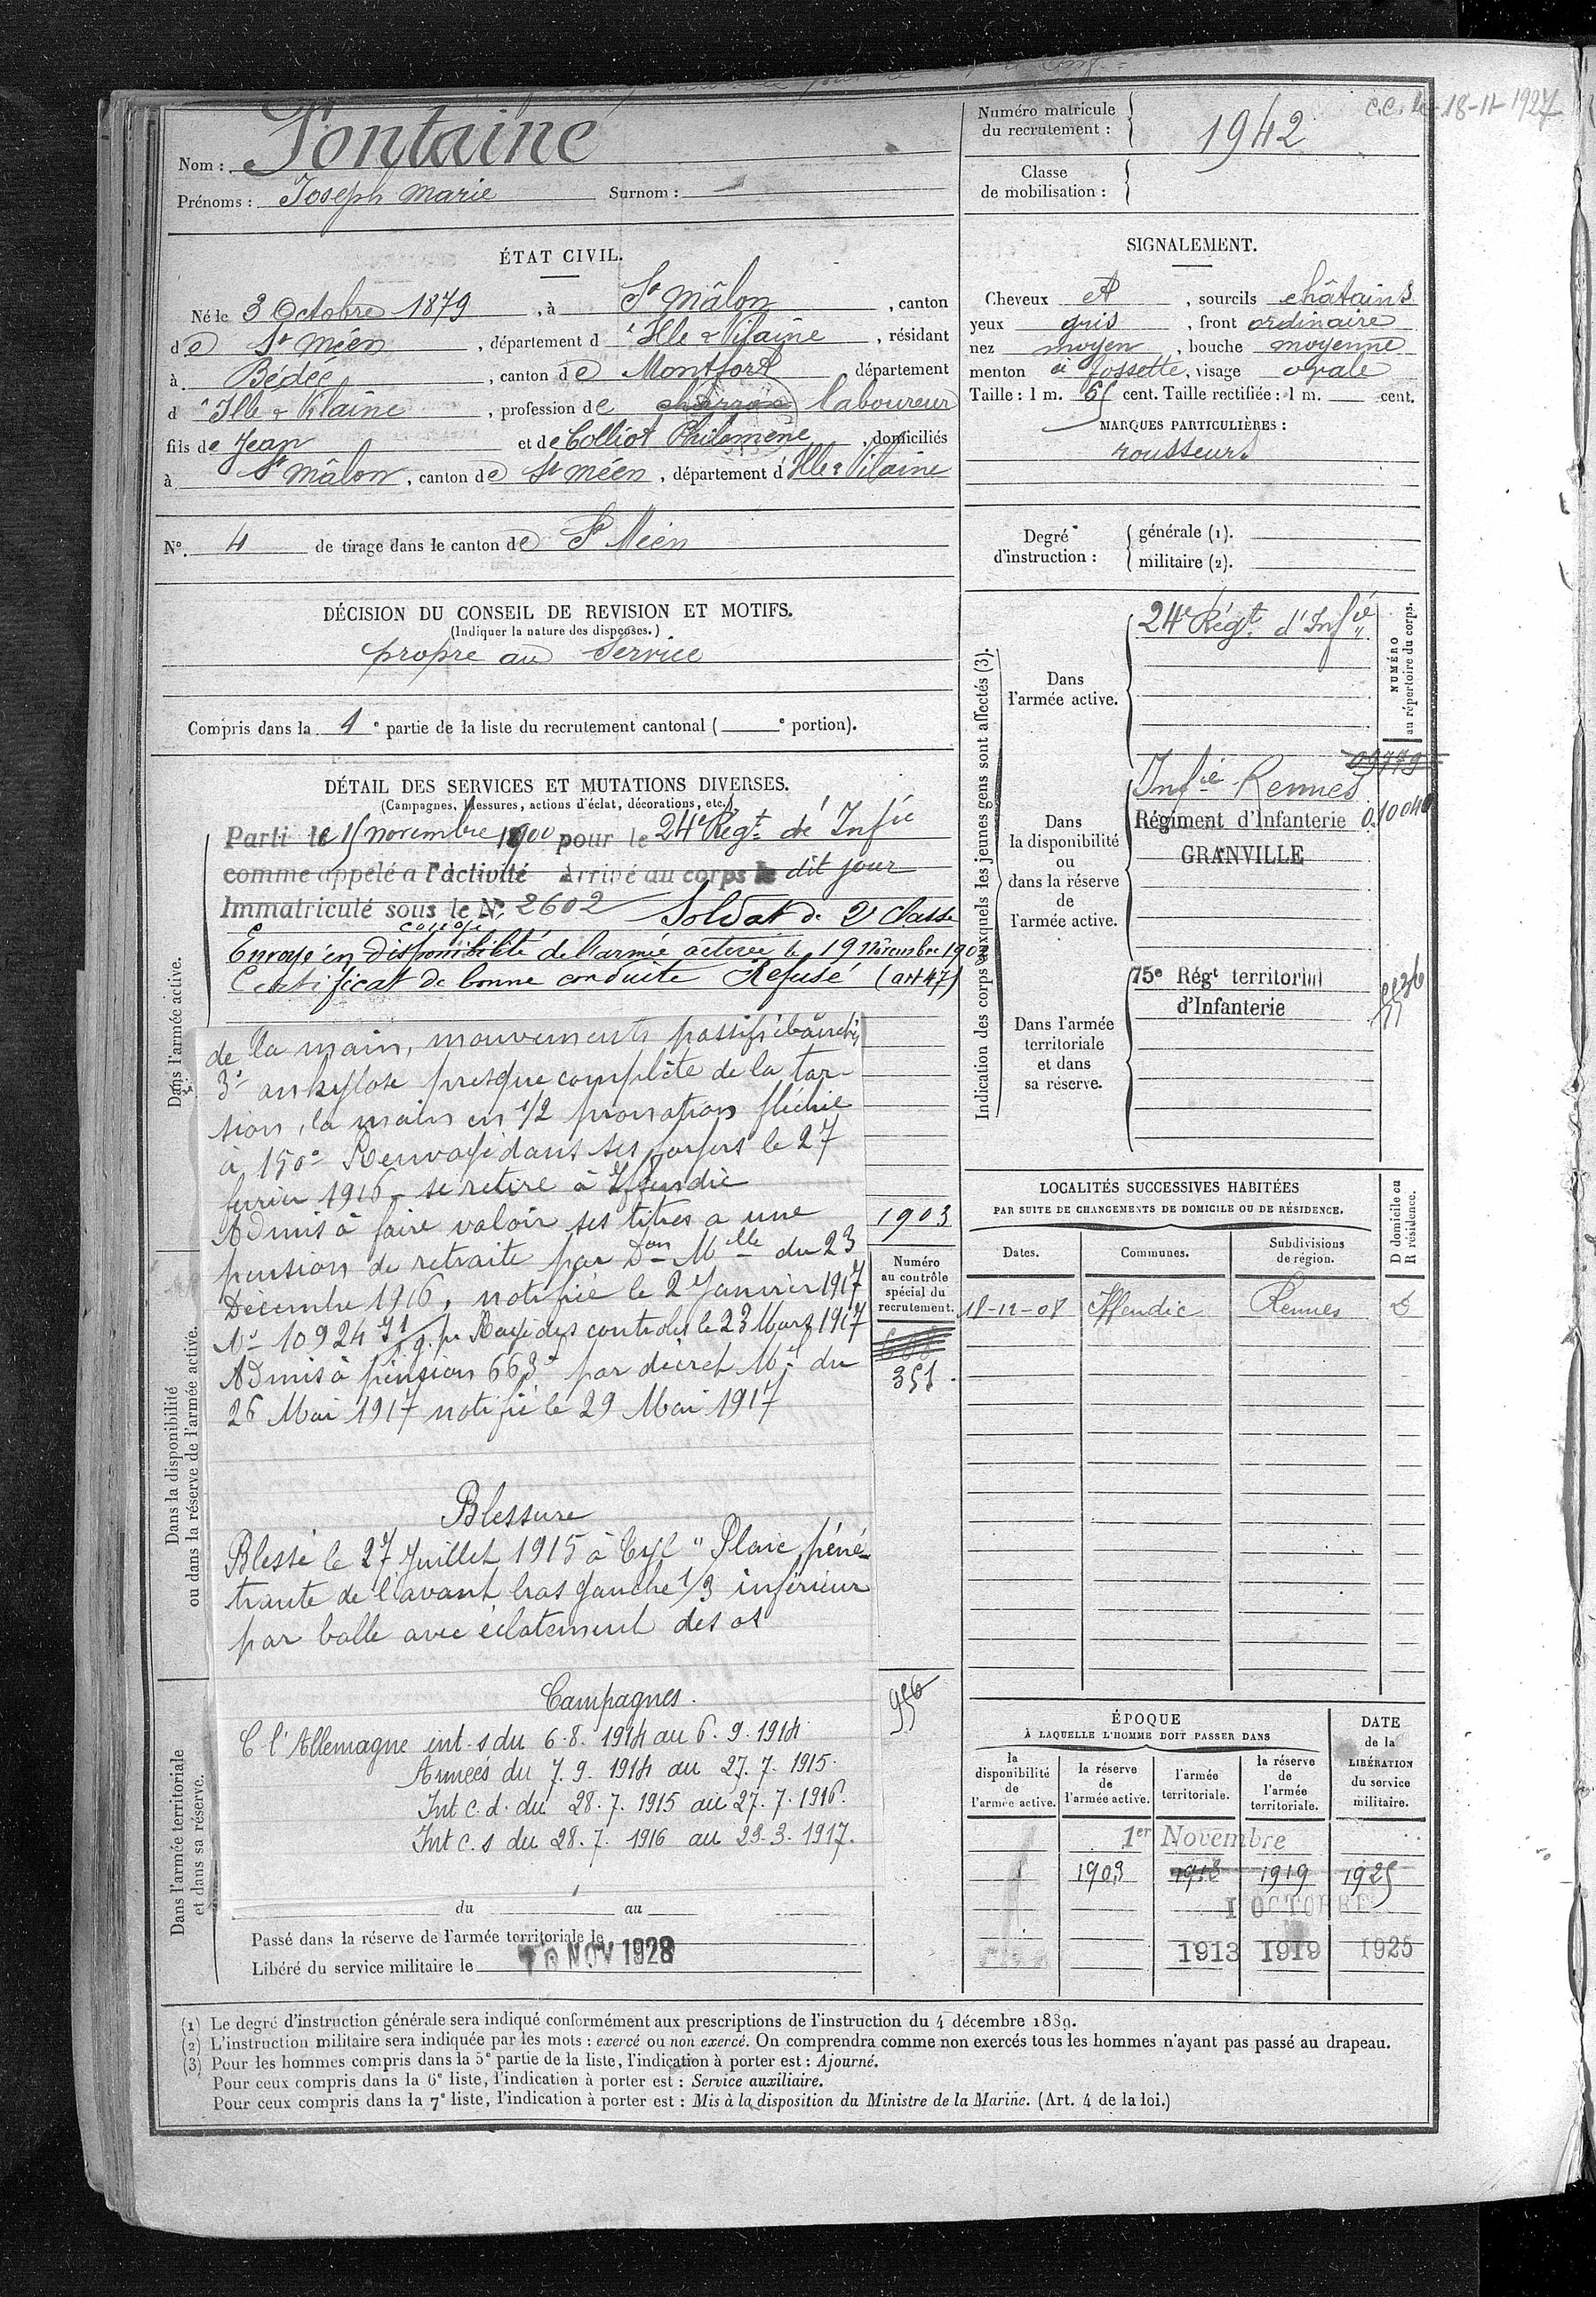 C.C. le 18-11-1927
Nom : Fontaine
Prénoms : Joseph Marie Surnom : —
Numéro matricule du recrutement : 1942
Classe de mobilisation :
ÉTAT CIVIL.
Né le 3 Octobre 1879, à St Mâlon, canton
de St Méen, département d'Ille & Vilaine, résidant
à Bédée, canton de Montfort département
d'Ille & Vilaine, profession de charron laboureur
fils de Jean et de Colliot Philomène, domiciliés
à St Mâlon, canton de St Méen, département d'Ille & Vilaine
No. 4 de tirage dans le canton de St Méen
SIGNALEMENT.
Cheveux et, sourcils châtains
yeux gris, front ordinaire
nez moyen, bouche moyenne
menton à fossette, visage ovale
Taille : 1 m. 65 cent. Taille rectifiée : 1 m. — cent.
MARQUES PARTICULIÈRES :
rousseurs
Degré d'instruction :
générale (1).
militaire (2).
DÉCISION DU CONSEIL DE REVISION ET MOTIFS.
(Indiquer la nature des dispenses.)
propre au Service
Compris dans la 1e partie de la liste du recrutement cantonal ( e portion).
DÉTAIL DES SERVICES ET MUTATIONS DIVERSES.
(Campagnes, blessures, actions d'éclat, décorations, etc.)
Parti le 15 novembre 1900 pour le 24e Régt d'Infie
comme appelé à l'activité Arrivé au corps le dit jour
Immatriculé sous le No 2602 Soldat de 2e Classe
congé
Envoyé en disponibilité de l'armée active le 19 Novembre 1903
Certificat de bonne conduite Refusé (art 47)
de la main, mouvements passifs ébauchés
3° ankylose presque complète de la tor-
sion, la main en 1/2 pronation fléchie
à 150° Renvoyé dans ses foyers le 27
février 1916 se retire à Iffendic
Admis à faire valoir ses titres a une
pension de retraite par Don Mlle du 23
Décembre 1916, notifiée le 2 Janvier 1917
No 10924 Rayé des controles le 23 Mars 1917
Admis à pension 663f par décret Mel du
26 Mai 1917 notifié le 29 Mai 1917
Blessure
Blessé le 27 Juillet 1915 à "Plaie péné-
trante de l'avant bras gauche 1/3 inférieur
par balle avec éclatement des os
Campagnes.
C l'Allemagne int. s du 6.8.1914 au 6.9.1914
Armées du 7.9.1914 au 27.7.1915.
Int c.d. du 28.7.1915 au 27.7.1916.
Int c.s du 28.7.1916 au 23.3.1917.
du au
Passé dans la réserve de l'armée territoriale le
Libéré du service militaire le 10 NOV 1928
Dans l'armée active.
Dans la disponibilité ou dans la réserve de l'armée active.
Dans l'armée territoriale et dans sa réserve.
1903
Numéro au contrôle spécial du recrutement.
351
956
Indication des corps auxquels les jeunes gens sont affectés (3).
NUMÉRO au répertoire du corps.
Dans l'armée active.
24e Régt d'Infie
Dans la disponibilité ou dans la réserve de l'armée active.
09779
Infie Rennes
Régiment d'Infanterie
GRANVILLE
Dans l'armée territoriale et dans sa réserve.
75e Régt territorial
d'Infanterie
LOCALITÉS SUCCESSIVES HABITÉES
PAR SUITE DE CHANGEMENTS DE DOMICILE OU DE RÉSIDENCE.
Dates. Communes. Subdivisions de région. D domicile ou R résidence.
18-12-08 Iffendic Rennes D
ÉPOQUE
À LAQUELLE L'HOMME DOIT PASSER DANS
la disponibilité de l'armée active. la réserve de l'armée active. l'armée territoriale. la réserve de l'armée territoriale. DATE de la LIBÉRATION du service militaire.
1er Novembre
1903 1913 1919 1925
1 OCTOBRE
1913 1919 1925
(1) Le degré d'instruction générale sera indiqué conformément aux prescriptions de l'instruction du 4 décembre 1889.
(2) L'instruction militaire sera indiquée par les mots : exercé ou non exercé. On comprendra comme non exercés tous les hommes n'ayant pas passé au drapeau.
(3) Pour les hommes compris dans la 5e partie de la liste, l'indication à porter est : Ajourné.
Pour ceux compris dans la 6e liste, l'indication à porter est : Service auxiliaire.
Pour ceux compris dans la 7e liste, l'indication à porter est : Mis à la disposition du Ministre de la Marine. (Art. 4 de la loi.)